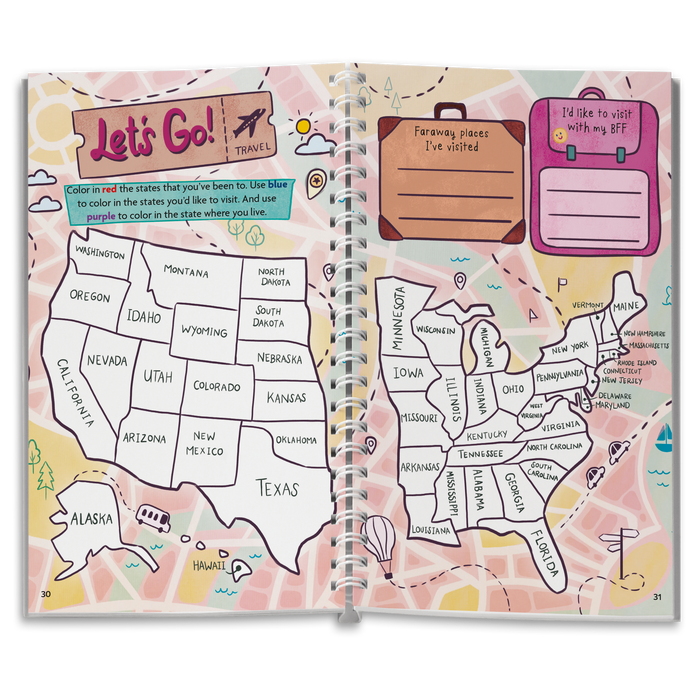 Let's Go!
TRAVEL
Color in red the states that you've been to. Use blue
to color in the states you'd like to visit. And use
purple to color in the state where you live.
WASHINGTON
MONTANA
NORTH
DAKOTA
OREGON
IDAHO
WYOMING
SOUTH
DAKOTA
NEBRASKA
NEVADA
UTAH
COLORADO
KANSAS
CALIFORNIA
ARIZONA
NEW
MEXICO
OKLAHOMA
TEXAS
ALASKA
HAWAII
30
Faraway places
I've visited
I'd like to visit
with my BFF
MINNESOTA
WISCONSIN
MICHIGAN
VERMONT
MAINE
NEW HAMPSHIRE
MASSACHUSETTS
NEW YORK
RHODE ISLAND
CONNECTICUT
IOWA
ILLINOIS
INDIANA
OHIO
PENNSYLVANIA
NEW JERSEY
DELAWARE
MARYLAND
MISSOURI
WEST
VIRGINIA
VIRGINIA
KENTUCKY
TENNESSEE
NORTH CAROLINA
ARKANSAS
MISSISSIPPI
ALABAMA
GEORGIA
SOUTH
CAROLINA
LOUISIANA
FLORIDA
31